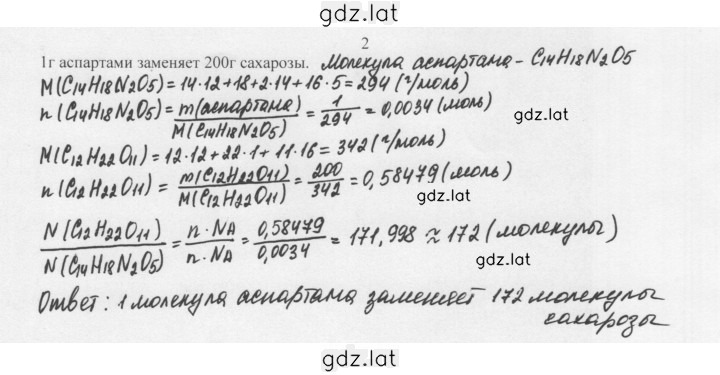 gdz.lat
2
1г аспартами заменяет 200г сахарозы. Молекула аспартама - C14H18N2O5
M(C14H18N2O5) = 14·12+18+2·14+16·5 = 294 (г/моль)
n(C14H18N2O5) = m(аспартама)/M(C14H18N2O5) = 1/294 = 0,0034 (моль)
gdz.lat
M(C12H22O11) = 12·12+22·1+11·16 = 342 (г/моль)
n(C12H22O11) = m(C12H22O11)/M(C12H22O11) = 200/342 = 0,58479 (моль)
gdz.lat
N(C12H22O11)/N(C14H18N2O5) = n·NA/n·NA = 0,58479/0,0034 = 171,998 ≈ 172 (молекулы)
gdz.lat
Ответ: 1 молекула аспартама заменяет 172 молекулы
сахарозы
gdz.lat